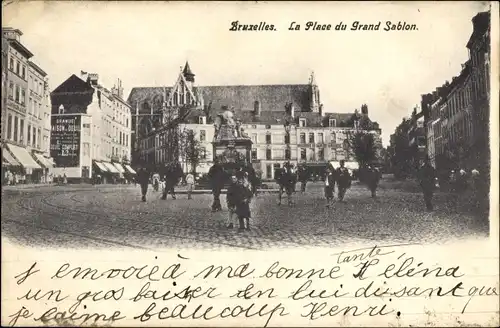 Bruxelles. La Place du Grand Sablon.
GRANDE
MAISON DE DEUIL
J'envoiéa ma bonne tante Héléna
un gros baiser en lui disant que
je t'aime beaucoup Henri.